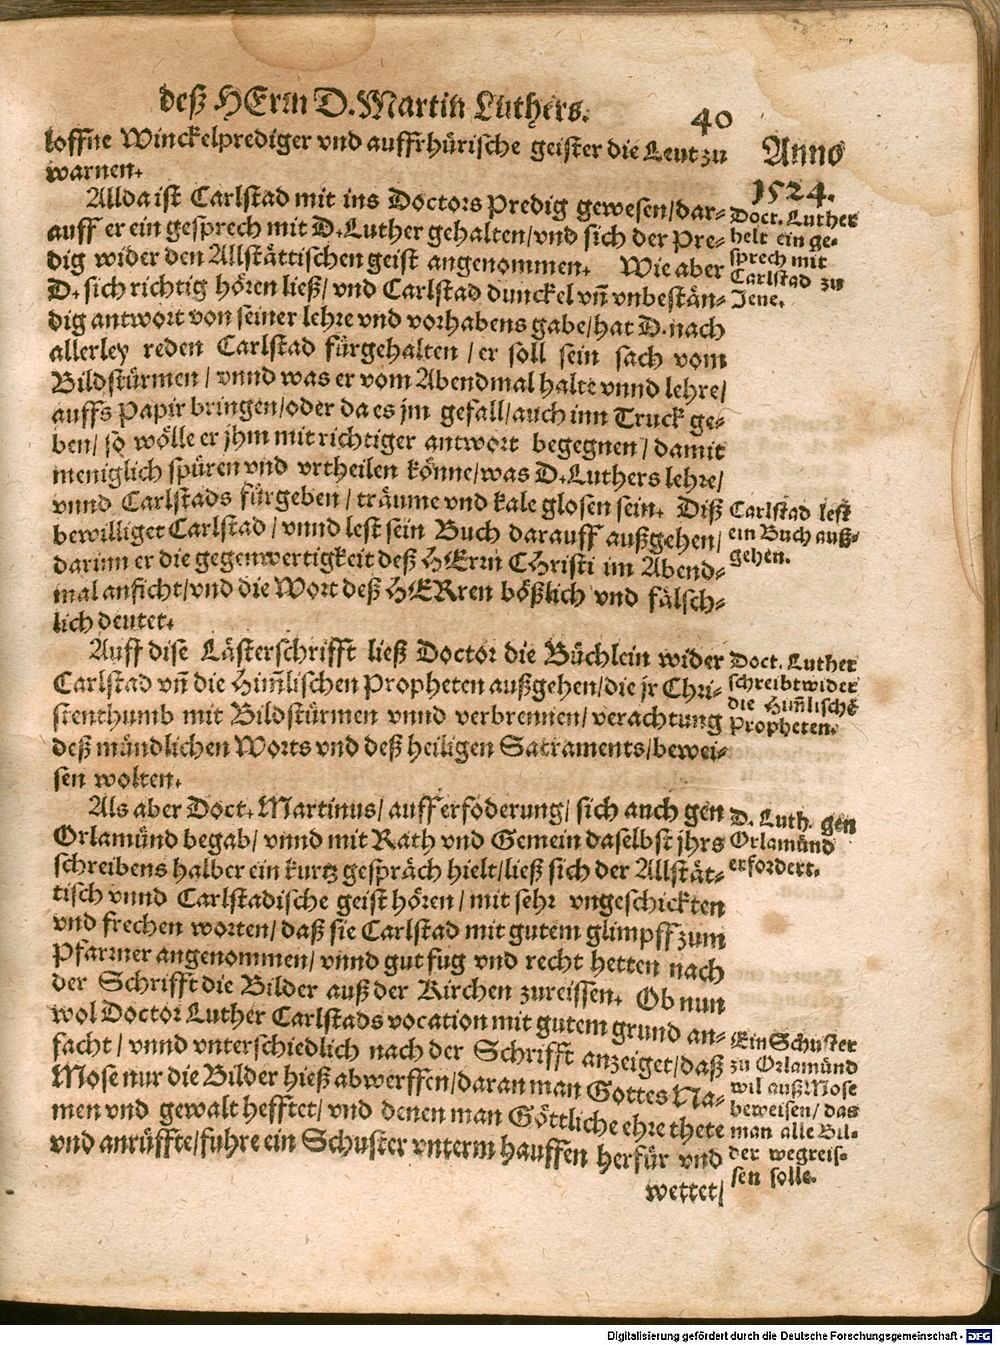 deß HErrn D. Martin Luthers.
40
loffne Winckelprediger vnd auffrhürische geister die Leut zu
warnen.
Anno
1524.
Allda ist Carlstad mit ins Doctors Predig gewesen/dar-
auff er ein gesprech mit D. Luther gehalten/vnd sich der Pre-
dig wider den Allstättischen geist angenommen. Wie aber
D. sich richtig hören ließ/ vnd Carlstad dunckel vñ vnbestän-
dig antwort von seiner lehre vnd vorhabens gabe/hat D. nach
allerley reden Carlstad fürgehalten / er soll sein sach vom
Bildstürmen / vnnd was er vom Abendmal halte vnnd lehre/
auffs Papir bringen/oder da es jm gefall/auch inn Truck ge-
ben/ so wölle er jhm mit richtiger antwort begegnen / damit
meniglich spüren vnd vrtheilen könne/was D. Luthers lehre/
vnnd Carlstads fürgeben / träume vnd kale glosen sein. Diß
bewilliget Carlstad / vnnd lest sein Buch darauff außgehen/
darinn er die gegenwertigkeit deß HErrn CHristi im Abend-
mal anficht/vnd die Wort deß HERren bößlich vnd fälsch-
lich deutet.
Doct. Luther
helt ein ge-
sprech mit
Carlstad zu
Jene.
Carlstad lest
ein Buch auß-
gehen.
Auff dise Lästerschrifft ließ Doctor die Büchlein wider
Carlstad vñ die Him̃lischen Propheten außgehen/die jr Chri-
stenthumb mit Bildstürmen vnnd verbrennen/verachtung
deß mündlichen Worts vnd deß heiligen Sacraments/bewei-
sen wolten.
Doct. Luther
schreibt wider
die Him̃lischē
Propheten.
Als aber Doct. Martinus/ auff erfoderung/ sich auch gen
Orlamünd begab/ vnnd mit Rath vnd Gemein daselbst jhrs
schreibens halber ein kurtz gespräch hielt/ließ sich der Allstät-
tisch vnnd Carlstadische geist hören / mit sehr vngeschickten
vnd frechen worten/ daß sie Carlstad mit gutem glimpff zum
Pfarrner angenommen/ vnnd gut fug vnd recht hetten nach
der Schrifft die Bilder auß der Kirchen zureissen. Ob nun
wol Doctor Luther Carlstads vocation mit gutem grund an-
facht / vnnd vnterschiedlich nach der Schrifft anzeiget/daß
Mose nur die Bilder hieß abwerffen/daran man Gottes Na-
men vnd gewalt hefftet/ vnd denen man Göttliche ehre thete
vnd anrüffte/fuhre ein Schuster vnterm hauffen herfür vnd
wettet/
D. Luth. gen
Orlamünd
erfordert.
Ein Schuster
zu Orlamünd
wil auß Mose
beweisen/ das
man alle Bil-
der wegreis-
sen solle.
Digitalisierung gefördert durch die Deutsche Forschungsgemeinschaft - DFG